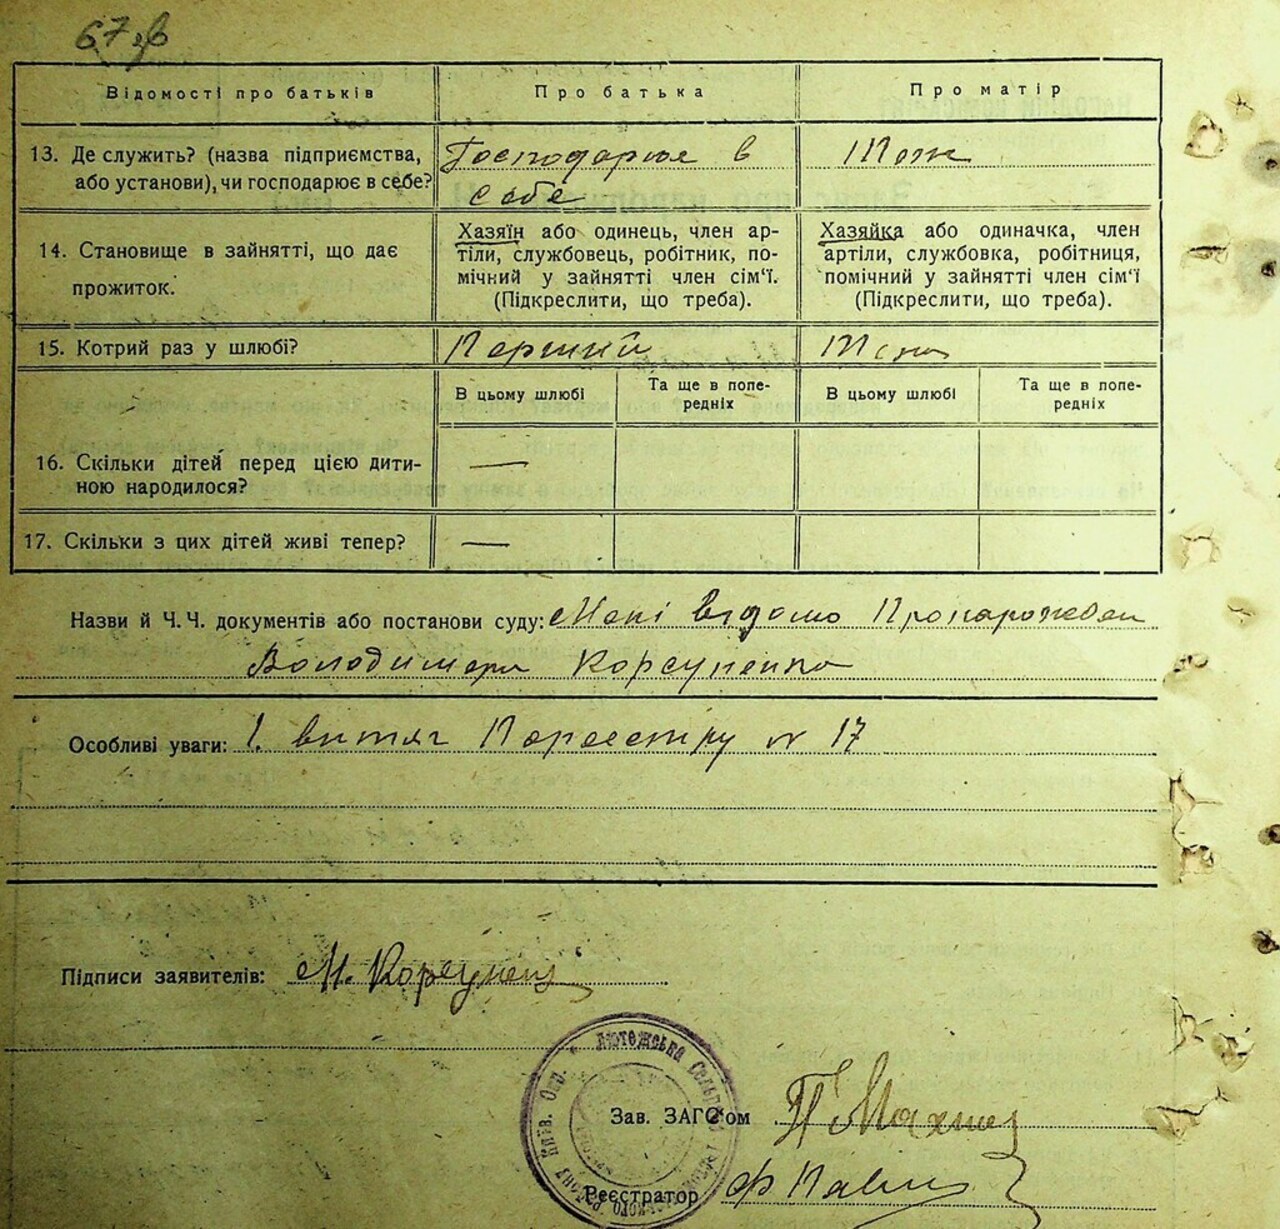 67 зв
Відомості про батьків
Про батька
Про матір
13. Де служить? (назва підприємства,
або установи), чи господарює в себе?
Господарює в
себе
Тож
14. Становище в зайнятті, що дає
прожиток.
Хазяїн або одинець, член ар-
тіли, службовець, робітник, по-
мічний у зайнятті член сім‘ї.
(Підкреслити, що треба).
Хазяйка або одиначка, член
артіли, службовка, робітниця,
помічний у зайнятті член сім‘ї
(Підкреслити, що треба).
15. Котрий раз у шлюбі?
Перший
В цьому шлюбі
Та ще в попе-
редніх
В цьому шлюбі
Та ще в попе-
редніх
16. Скільки дітей перед цією дити-
ною народилося?
—
17. Скільки з цих дітей живі тепер?
—
Назви й Ч.Ч. документів або постанови суду: Мені відомо
Володимера Корсуненко
Особливі уваги: 1. витяг Пореестру № 17
Підписи заявителів: М. Корсунец
Лютежська Сель
Київ. Окр.
Зав. ЗАГС‘ом
Реєстратор